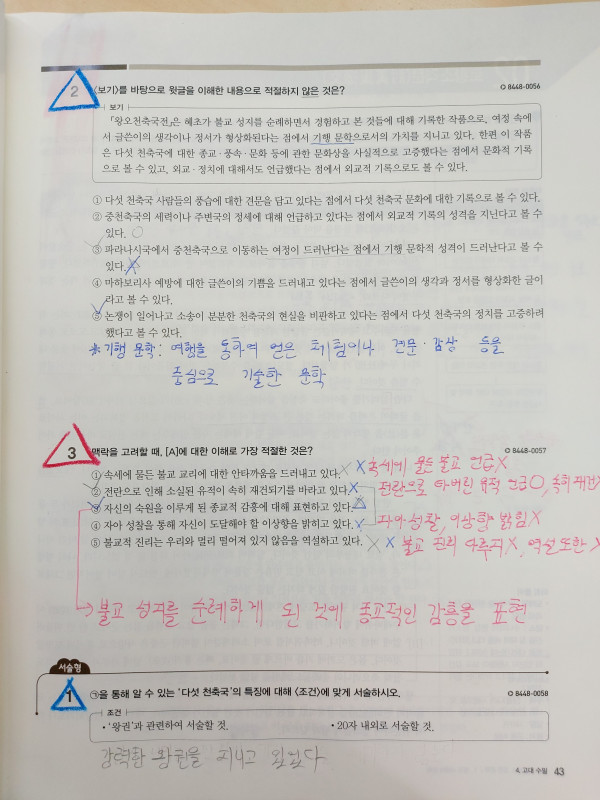 2 〈보기〉를 바탕으로 윗글을 이해한 내용으로 적절하지 않은 것은? 8448-0056
보기
「왕오천축국전」은 혜초가 불교 성지를 순례하면서 경험하고 본 것들에 대해 기록한 작품으로, 여정 속에
서 글쓴이의 생각이나 정서가 형상화된다는 점에서 기행 문학으로서의 가치를 지니고 있다. 한편 이 작품
은 다섯 천축국에 대한 종교·풍속·문화 등에 관한 문화상을 사실적으로 고증했다는 점에서 문화적 기록
으로 볼 수 있고, 외교·정치에 대해서도 언급했다는 점에서 외교적 기록으로도 볼 수 있다.
① 다섯 천축국 사람들의 풍습에 대한 견문을 담고 있다는 점에서 다섯 천축국 문화에 대한 기록으로 볼 수 있다.
② 중천축국의 세력이나 주변국의 정세에 대해 언급하고 있다는 점에서 외교적 기록의 성격을 지닌다고 볼 수
있다. ○
③ 파라나시국에서 중천축국으로 이동하는 여정이 드러난다는 점에서 기행 문학적 성격이 드러난다고 볼 수
있다.
④ 마하보리사 예방에 대한 글쓴이의 기쁨을 드러내고 있다는 점에서 글쓴이의 생각과 정서를 형상화한 글이
라고 볼 수 있다.
⑤ 논쟁이 일어나고 소송이 분분한 천축국의 현실을 비판하고 있다는 점에서 다섯 천축국의 정치를 고증하려
했다고 볼 수 있다.
※기행 문학: 여행을 통하여 얻은 체험이나 견문·감상 등을
중심으로 기술한 문학
3 맥락을 고려할 때, [A]에 대한 이해로 가장 적절한 것은? 8448-0057
① 속세에 물든 불교 교리에 대한 안타까움을 드러내고 있다. X 속세에 물든 불교 언급X
② 전란으로 인해 소실된 유적이 속히 재건되기를 바라고 있다. X 전란으로 타버린 유적 언급○, 속히 재건X
③ 자신의 숙원을 이루게 된 종교적 감흥에 대해 표현하고 있다.
④ 자아 성찰을 통해 자신이 도달해야 할 이상향을 밝히고 있다. X 자아성찰, 이상향 밝힘X
⑤ 불교적 진리는 우리와 멀리 떨어져 있지 않음을 역설하고 있다. X 불교 진리 다루지X, 역설 또한X
→불교 성지를 순례하게 된 것에 종교적인 감흥을 표현
서술형
1 ㉠을 통해 알 수 있는 ‘다섯 천축국’의 특징에 대해 〈조건〉에 맞게 서술하시오. 8448-0058
조건
• ‘왕권’과 관련하여 서술할 것. • 20자 내외로 서술할 것.
강력한 왕권을 지니고 있었다
4. 고대 수필 43